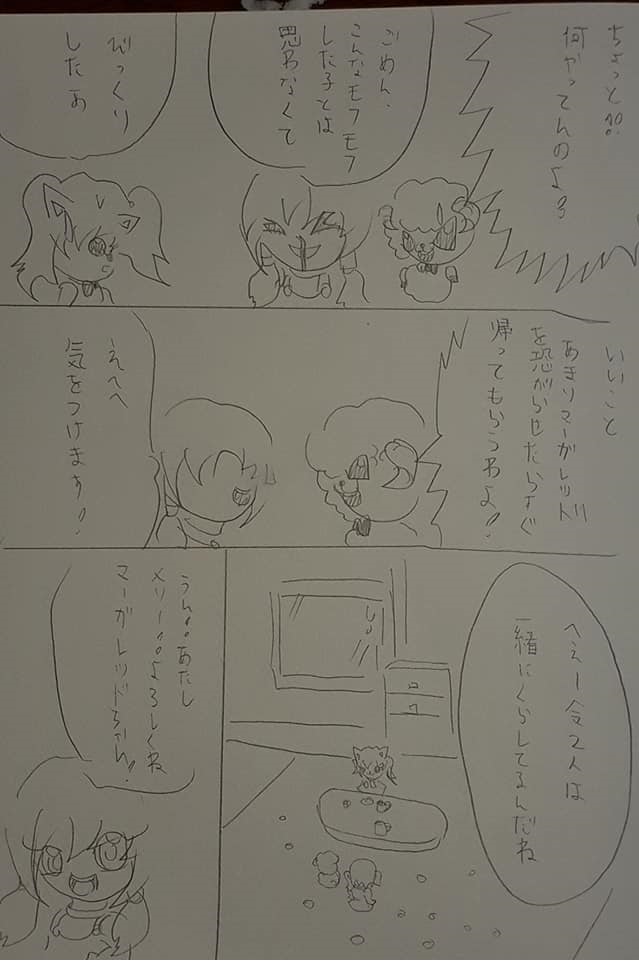 ちょっと!!
何やってんのよ!
ごめん、
こんなモフモフ
した子とは
思わなくて
びっくり
したぁ
いいこと
あまりマーガレッド
を恐がらせたらすぐ
帰ってもらうわよ!
えへへ
気をつけます!
へぇー今2人は
一緒にくらしてるんだね
うん!!あたし
メリー!!よろしくね
マーガレッドちゃん!